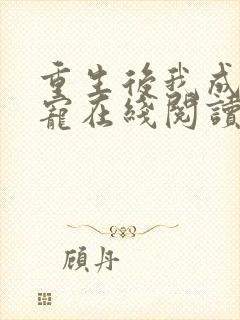 重生後我成
寵在綫閱讀
顧丹